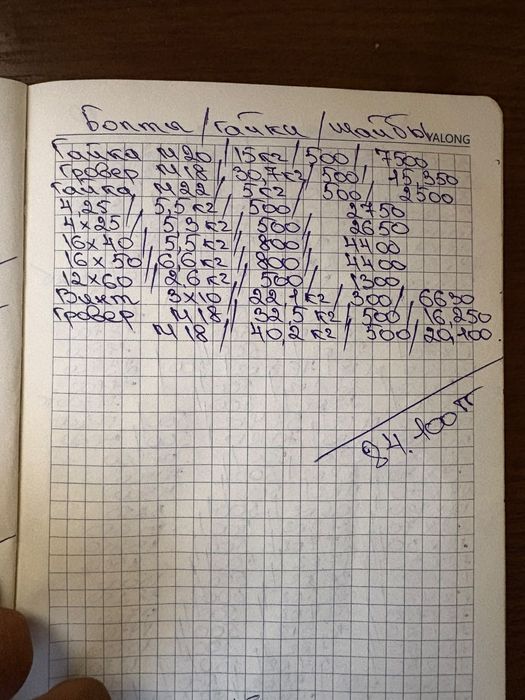 Болты / Гайки / шайбы
VALONG
Гайка М20 / 15кг / 500 / 7500
Гровер М18 / 30,7кг / 500 / 15,350
Гайка М22 / 5кг / 500 / 2500
4,25 / 5,5кг / 500 / 2750
4×25 / 5,3кг / 500 / 2650
16×40 / 5,5кг / 800 / 4400
16×50 / 6,6кг / 800 / 4400
12×60 / 2,6кг / 500 / 1300
Винт 3×10 / 22,1кг / 300 / 6630
Гровер М18 / 32,5кг / 500 / 16,250
М18 / 40,2кг / 500 / 20,100
84.100тг